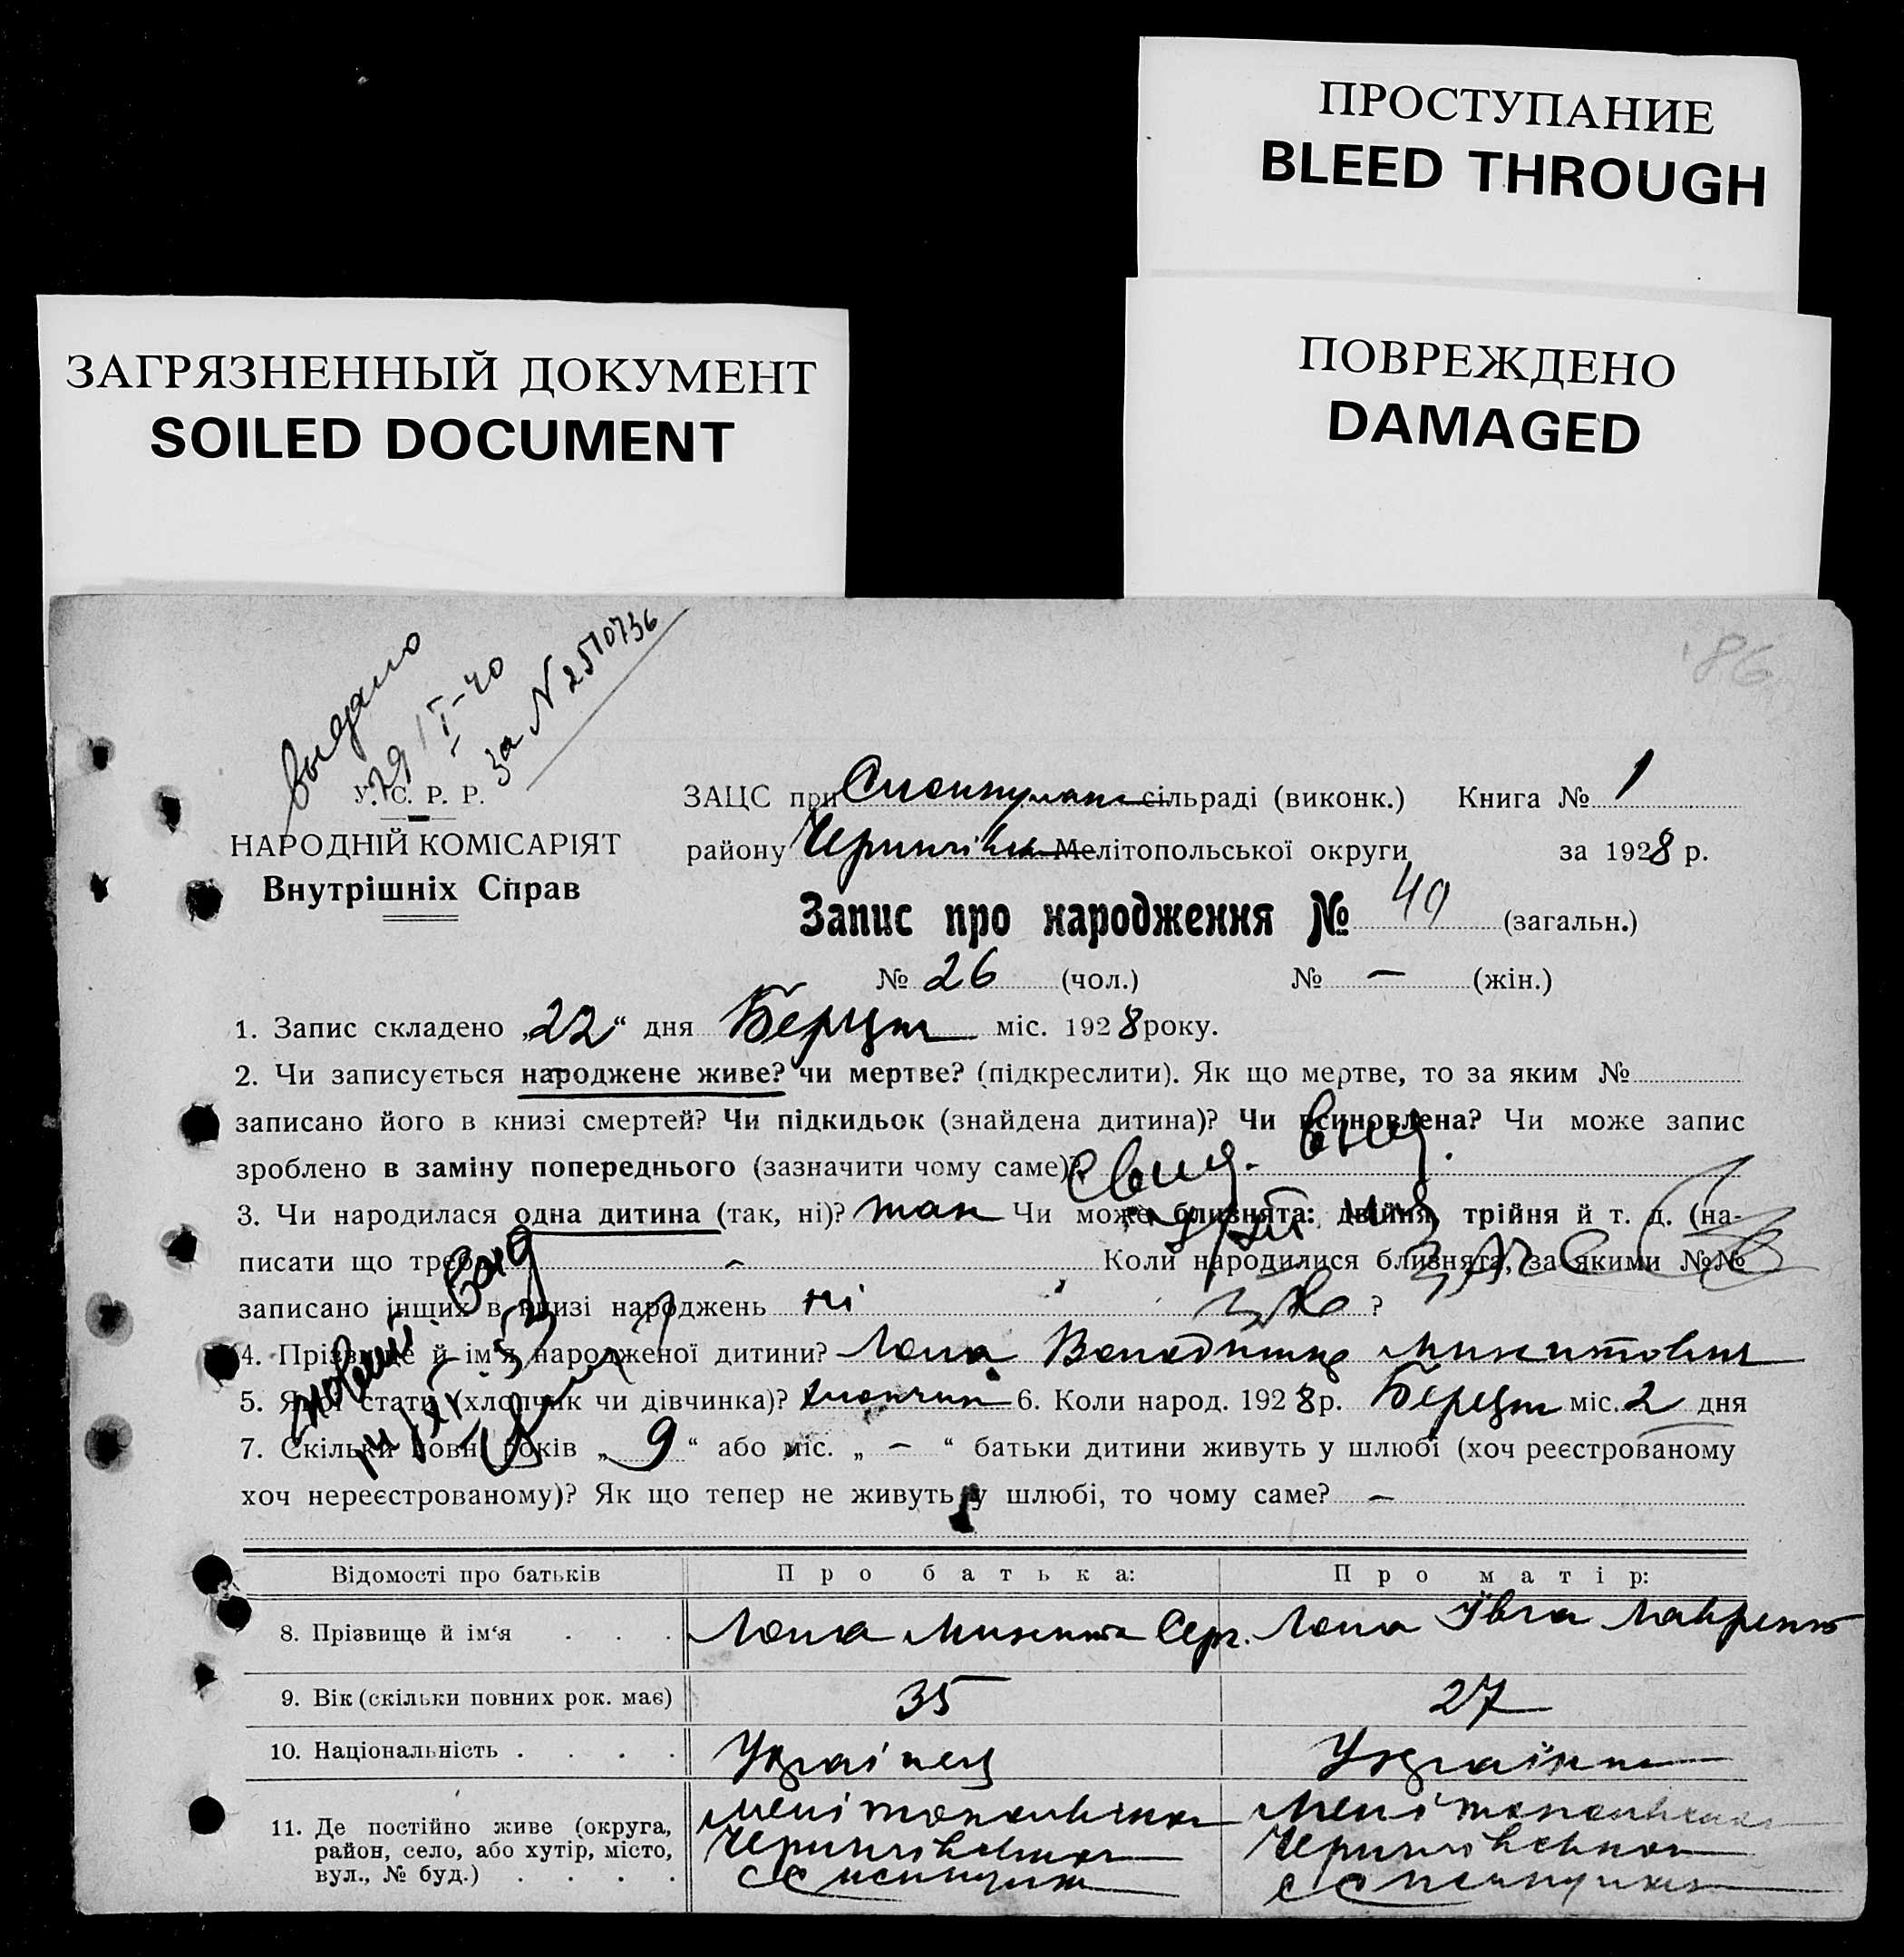 ПРОСТУПАНИЕ
BLEED THROUGH
ЗАГРЯЗНЕННЫЙ ДОКУМЕНТ
SOILED DOCUMENT
ПОВРЕЖДЕНО
DAMAGED
86
выдано
29/I-40
за N 2510736
У. С. Р. Р.
НАРОДНІЙ КОМІСАРІЯТ
Внутрішніх Справ
ЗАЦС при сільраді (виконк.) Книга № 1
району Мелітопольської округи за 1928 р.
Запис про народження № 49 (загальн.)
№ 26 (чол.) № — (жін.)
1. Запис складено „22“ дня Берцня міс. 1928 року.
2. Чи записується народжене живе? чи мертве? (підкреслити). Як що мертве, то за яким №
записано його в книзі смертей? Чи підкидьок (знайдена дитина)? Чи всиновлена? Чи може запис
зроблено в заміну попереднього (зазначити чому саме)?
3. Чи народилася одна дитина (так, ні)? так Чи може близнята: двійня, трійня й т. д. (на-
писати що треба) Коли народилися близнята, за якими №№
записано інших в книзі народжень ні ?
4. Прізвище й ім'я народженої дитини? Лопа Володимир Микитович
5. Якої стати (хлопчик чи дівчинка)? хлопчик 6. Коли народ. 1928 р. Берецня міс. 2 дня
7. Скільки повн. років „9“ або міс. „—“ батьки дитини живуть у шлюбі (хоч реєстрованому
хоч нереєстрованому)? Як що тепер не живуть у шлюбі, то чому саме? —
Відомості про батьків Про батька: Про матір:
8. Прізвище й ім'я . . . Лопа Микита Серг. Лопа Ївга Лаврент
9. Вік (скільки повних рок. має) 35 27
10. Національність . . . . Українец Українка
11. Де постійно живе (округа, Мелітопольська Мелітопольська
район, село, або хутір, місто, Чернигівська Чернигівська
вул., № буд.) . . . .